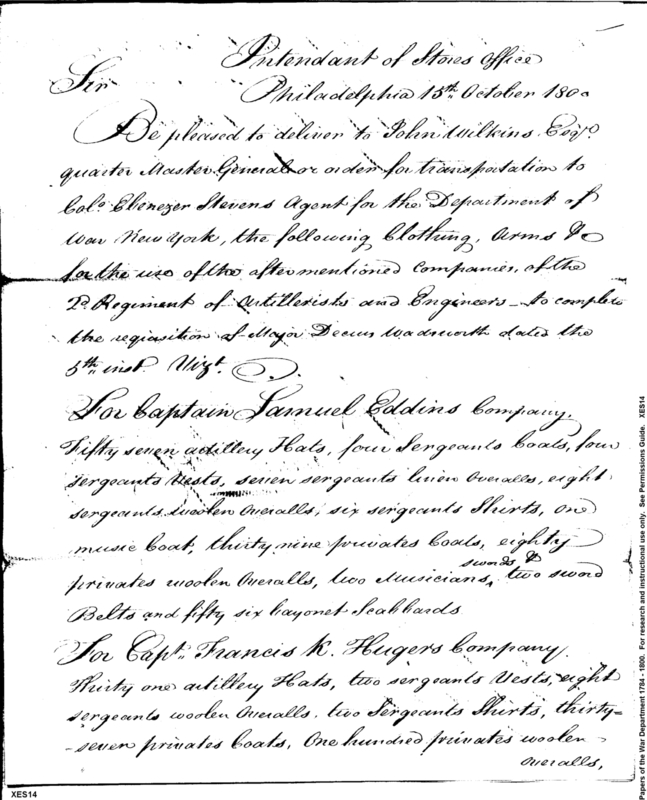 Intendant of Stores Office
Sir
Philadelphia 15th October 1800
Be pleased to deliver to John Wilkins Esqr
quarter Master General or order for transportation to
Colo Ebenezer Stevens Agent for the Department of
War New York, the following Clothing, Arms &c
for the use of the after mentioned companies, of the
2d Regiment of Artillerists and Engineers - to complete
the requisition of Major Decius Wadsworth dated the
5th inst. Vizt.
For Captain Samuel Eddins Company.
Fifty seven artillery Hats, four Sergeants Coats, four
sergeants Vests, seven sergeants linen Overalls, eight
sergeants woolen Overalls, six sergeants Shirts, one
music Coat, thirty nine privates Coats, eighty
privates woolen Overalls, two Musicians swords & two sword
Belts and fifty six bayonet Scabbards
For Capt. Francis K. Hugers Company.
Thirty one artillery Hats, two sergeants Vests, eight
sergeants woolen Overalls, two Sergeants Shirts, thirty-
-seven privates Coats, One hundred privates woolen
Overalls,
XES14
Papers of the War Department 1784 - 1800. For research and instructional use only. See Permissions Guide. XES14